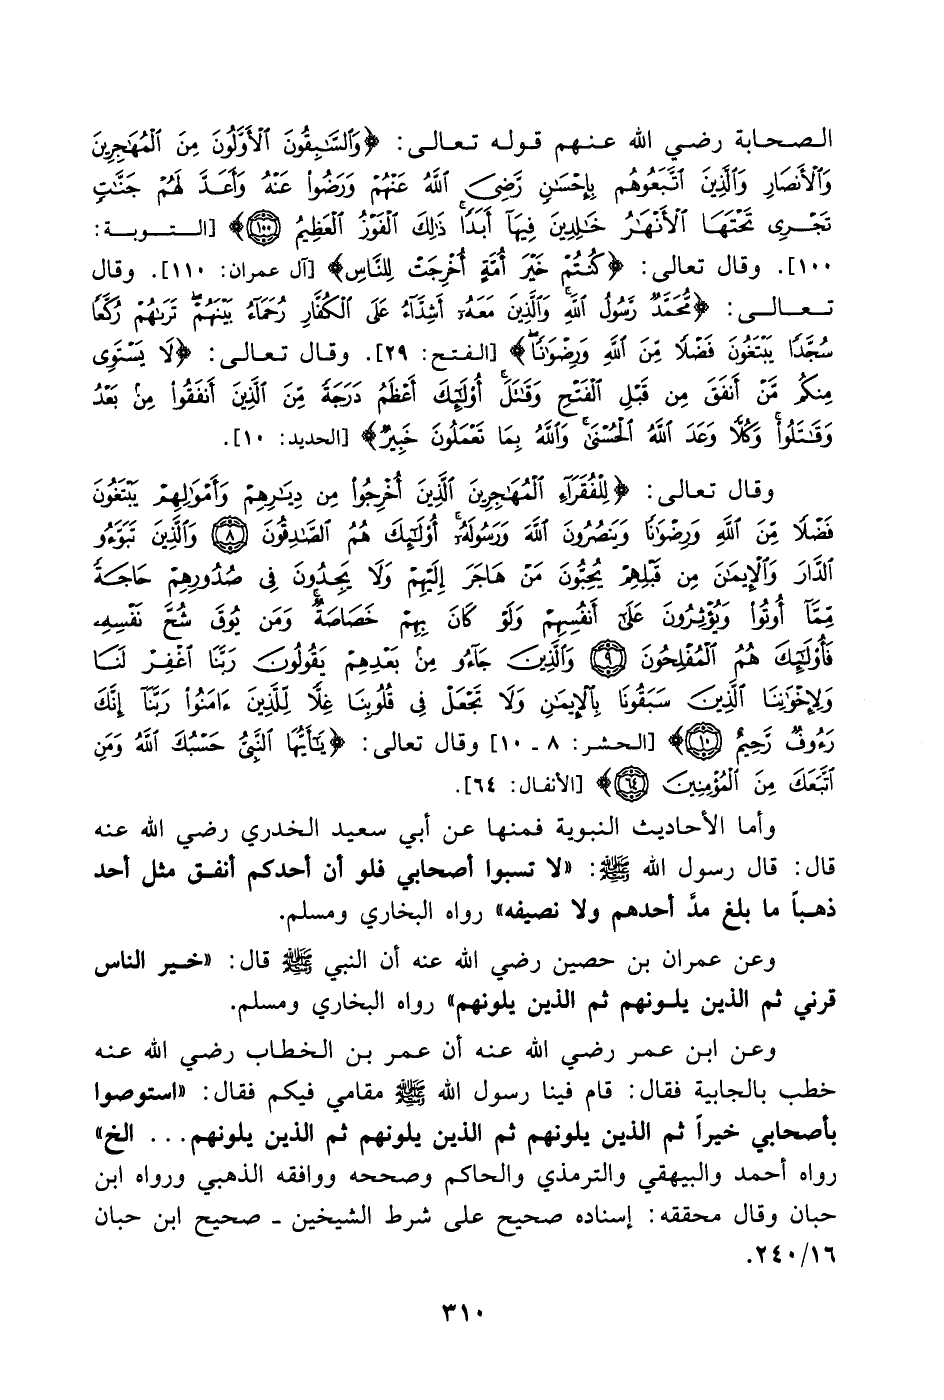 الصحابة رضي الله عنهم قوله تعالى: ﴿وَٱلسَّٰبِقُونَ ٱلْأَوَّلُونَ مِنَ ٱلْمُهَٰجِرِينَ
وَٱلْأَنصَارِ وَٱلَّذِينَ ٱتَّبَعُوهُم بِإِحْسَٰنٍ رَّضِىَ ٱللَّهُ عَنْهُمْ وَرَضُوا۟ عَنْهُ وَأَعَدَّ لَهُمْ جَنَّٰتٍ
تَجْرِى تَحْتَهَا ٱلْأَنْهَٰرُ خَٰلِدِينَ فِيهَآ أَبَدًا ۚ ذَٰلِكَ ٱلْفَوْزُ ٱلْعَظِيمُ ١٠٠﴾ [التوبة:
١٠٠]. وقال تعالى: ﴿كُنتُمْ خَيْرَ أُمَّةٍ أُخْرِجَتْ لِلنَّاسِ﴾ [آل عمران: ١١٠]. وقال
تعالى: ﴿مُّحَمَّدٌ رَّسُولُ ٱللَّهِ ۚ وَٱلَّذِينَ مَعَهُۥٓ أَشِدَّآءُ عَلَى ٱلْكُفَّارِ رُحَمَآءُ بَيْنَهُمْ ۖ تَرَىٰهُمْ رُكَّعًا
سُجَّدًا يَبْتَغُونَ فَضْلًا مِّنَ ٱللَّهِ وَرِضْوَٰنًا ۖ﴾ [الفتح: ٢٩]. وقال تعالى: ﴿لَا يَسْتَوِى
مِنكُم مَّنْ أَنفَقَ مِن قَبْلِ ٱلْفَتْحِ وَقَٰتَلَ ۚ أُو۟لَٰٓئِكَ أَعْظَمُ دَرَجَةً مِّنَ ٱلَّذِينَ أَنفَقُوا۟ مِنۢ بَعْدُ
وَقَٰتَلُوا۟ ۚ وَكُلًّا وَعَدَ ٱللَّهُ ٱلْحُسْنَىٰ ۚ وَٱللَّهُ بِمَا تَعْمَلُونَ خَبِيرٌ﴾ [الحديد: ١٠].
وقال تعالى: ﴿لِلْفُقَرَآءِ ٱلْمُهَٰجِرِينَ ٱلَّذِينَ أُخْرِجُوا۟ مِن دِيَٰرِهِمْ وَأَمْوَٰلِهِمْ يَبْتَغُونَ
فَضْلًا مِّنَ ٱللَّهِ وَرِضْوَٰنًا وَيَنصُرُونَ ٱللَّهَ وَرَسُولَهُۥٓ ۚ أُو۟لَٰٓئِكَ هُمُ ٱلصَّٰدِقُونَ ٨ وَٱلَّذِينَ تَبَوَّءُو
ٱلدَّارَ وَٱلْإِيمَٰنَ مِن قَبْلِهِمْ يُحِبُّونَ مَنْ هَاجَرَ إِلَيْهِمْ وَلَا يَجِدُونَ فِى صُدُورِهِمْ حَاجَةً
مِّمَّآ أُوتُوا۟ وَيُؤْثِرُونَ عَلَىٰٓ أَنفُسِهِمْ وَلَوْ كَانَ بِهِمْ خَصَاصَةٌ ۚ وَمَن يُوقَ شُحَّ نَفْسِهِۦ
فَأُو۟لَٰٓئِكَ هُمُ ٱلْمُفْلِحُونَ ٩ وَٱلَّذِينَ جَآءُو مِنۢ بَعْدِهِمْ يَقُولُونَ رَبَّنَا ٱغْفِرْ لَنَا
وَلِإِخْوَٰنِنَا ٱلَّذِينَ سَبَقُونَا بِٱلْإِيمَٰنِ وَلَا تَجْعَلْ فِى قُلُوبِنَا غِلًّا لِّلَّذِينَ ءَامَنُوا۟ رَبَّنَآ إِنَّكَ
رَءُوفٌ رَّحِيمٌ ١٠﴾ [الحشر: ٨ - ١٠] وقال تعالى: ﴿يَٰٓأَيُّهَا ٱلنَّبِىُّ حَسْبُكَ ٱللَّهُ وَمَنِ
ٱتَّبَعَكَ مِنَ ٱلْمُؤْمِنِينَ ٦٤﴾ [الأنفال: ٦٤].
وأما الأحاديث النبوية فمنها عن أبي سعيد الخدري رضي الله عنه
قال: قال رسول الله ﷺ: «لا تسبوا أصحابي فلو أن أحدكم أنفق مثل أحد
ذهباً ما بلغ مدَّ أحدهم ولا نصيفه» رواه البخاري ومسلم.
وعن عمران بن حصين رضي الله عنه أن النبي ﷺ قال: «خير الناس
قرني ثم الذين يلونهم ثم الذين يلونهم» رواه البخاري ومسلم.
وعن ابن عمر رضي الله عنه أن عمر بن الخطاب رضي الله عنه
خطب بالجابية فقال: قام فينا رسول الله ﷺ مقامي فيكم فقال: «استوصوا
بأصحابي خيراً ثم الذين يلونهم ثم الذين يلونهم ثم الذين يلونهم... الخ»
رواه أحمد والبيهقي والترمذي والحاكم وصححه ووافقه الذهبي ورواه ابن
حبان وقال محققه: إسناده صحيح على شرط الشيخين - صحيح ابن حبان
٢٤٠/١٦.
٣١٠